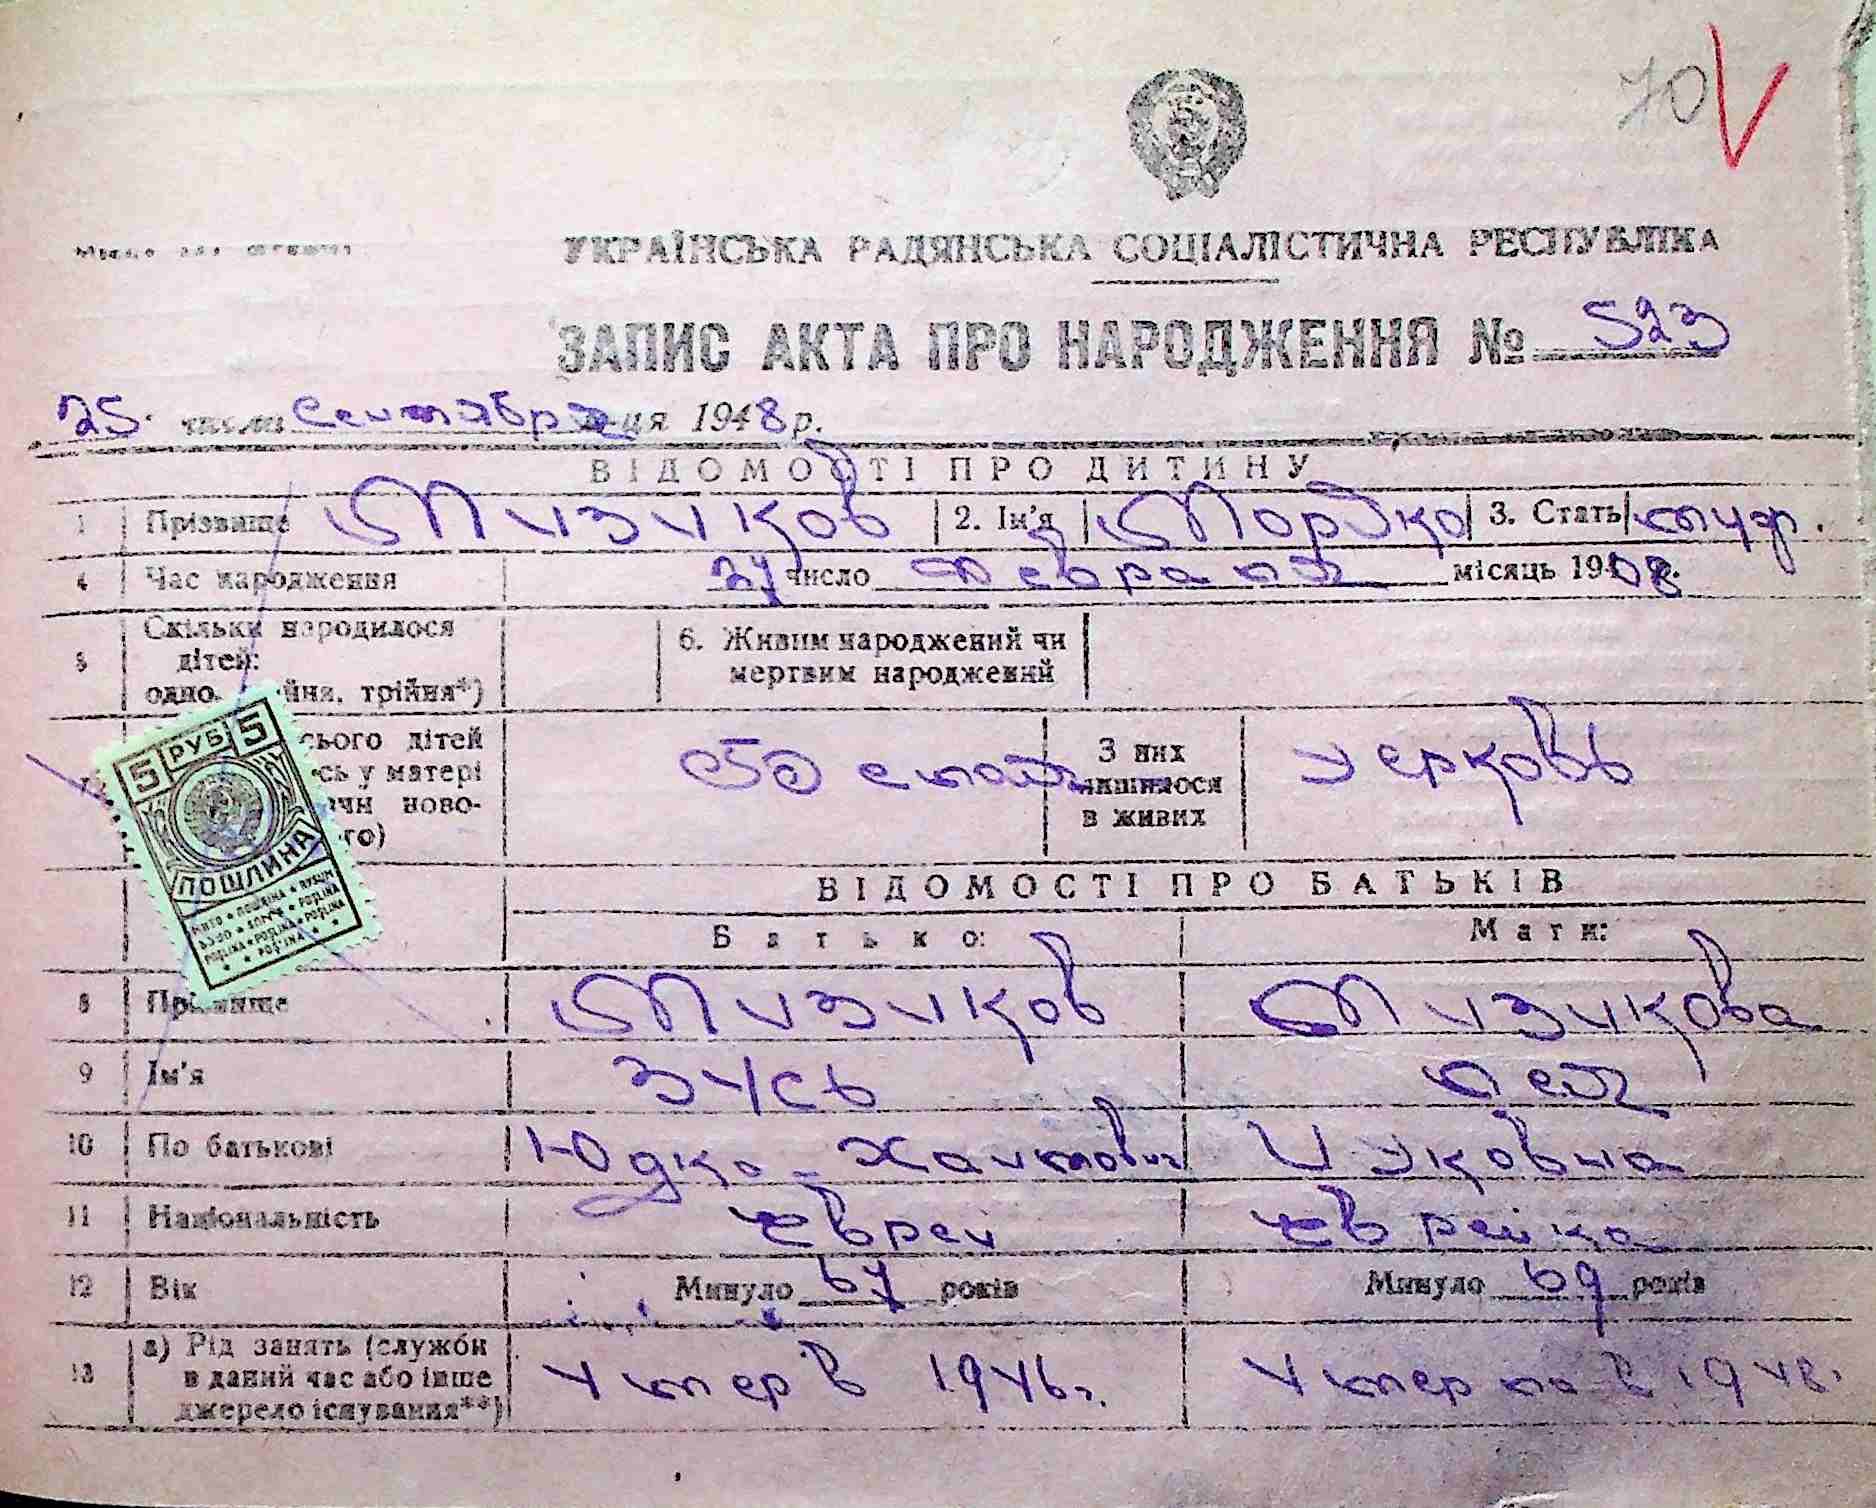 70
УКРАЇНСЬКА РАДЯНСЬКА СОЦІАЛІСТИЧНА РЕСПУБЛІКА
ЗАПИС АКТА ПРО НАРОДЖЕННЯ № 523
25 числа сентября ця 1948 р.
ВІДОМОСТІ ПРО ДИТИНУ
1 Прізвище Мизиков 2. Ім'я Мордко 3. Стать муж.
4 Час народження число февраля місяць 1908 р.
5 Скільки народилося 6. Живим народжений чи
дітей: мертвим народжений
одно, йня, трійня*)
сього дітей З них
сь у матері лишилося
ново- в живих
го)
5 РУБ 5
ПОШЛИНА
ВІДОМОСТІ ПРО БАТЬКІВ
Батько: Мати:
8 Прізвище Мизиков Мизикова
9 Ім'я Зусь
10 По батькові Юдко-Хаимович
11 Національність еврей еврейка
12 Вік Минуло 67 років Минуло 69 років
13 а) Рід занять (служби
в даний час або інше умер в 1946 г. умерла в 1948.
джерело існування**)